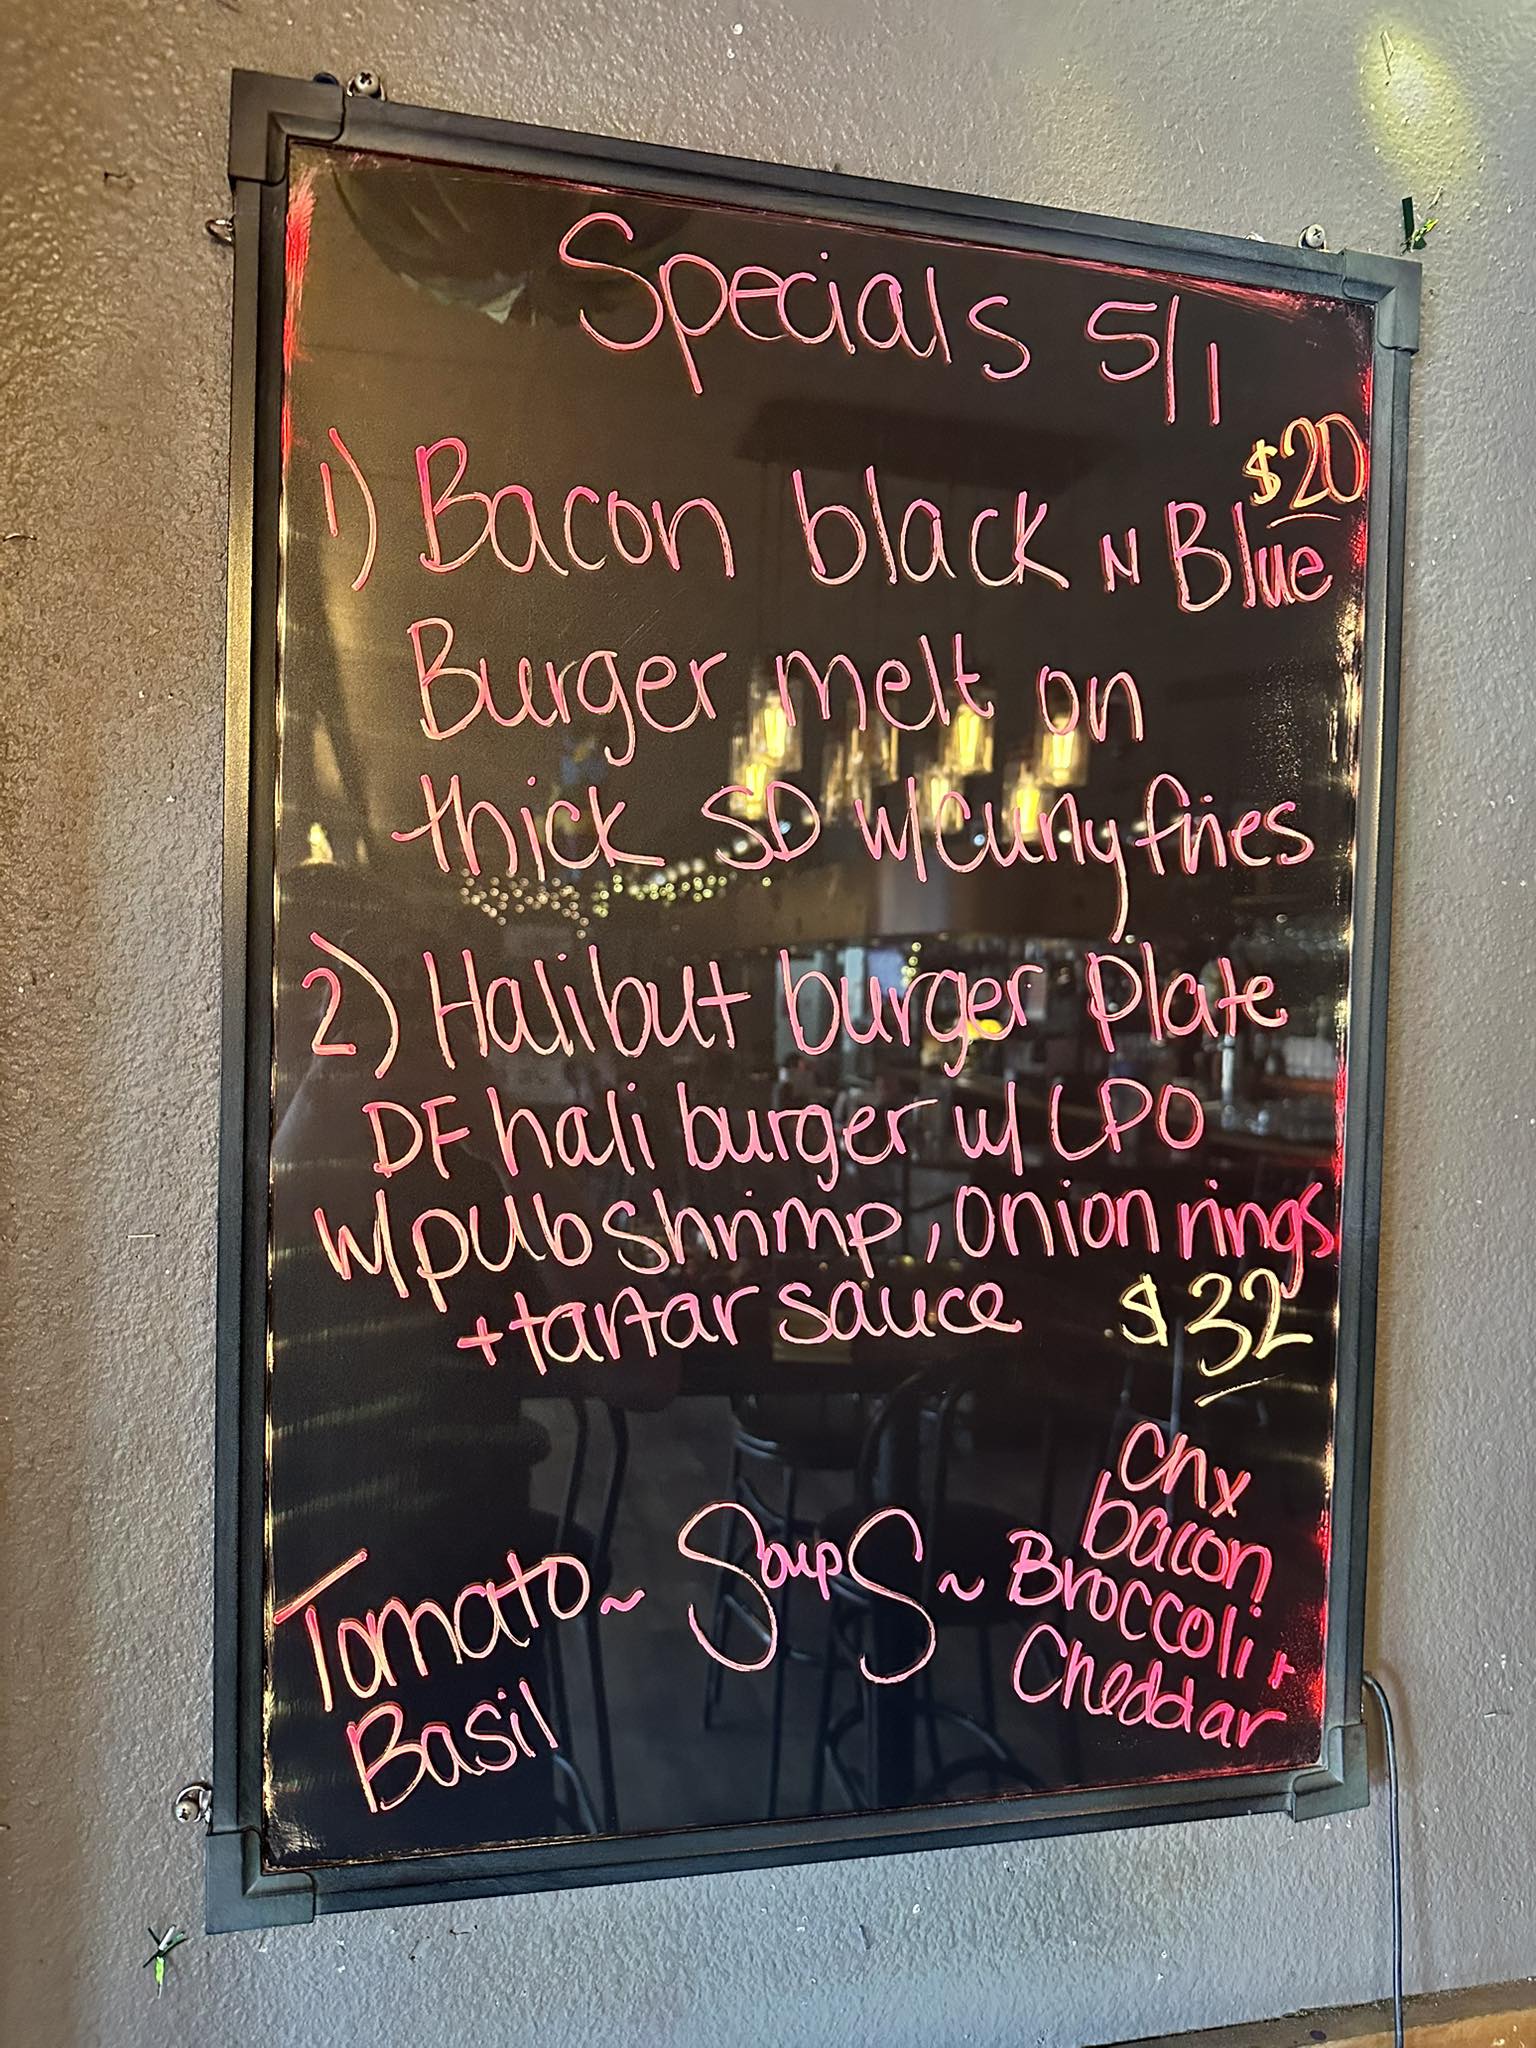 Specials 5/1
$20
1) Bacon black N Blue
Burger melt on
thick SD w/curly fries
2) Halibut burger plate
DF hali burger w/ LPO
w/pub shrimp, onion rings
+ tartar sauce $32
Tomato ~
Basil
Soups
~ chx
bacon
Broccoli +
Cheddar